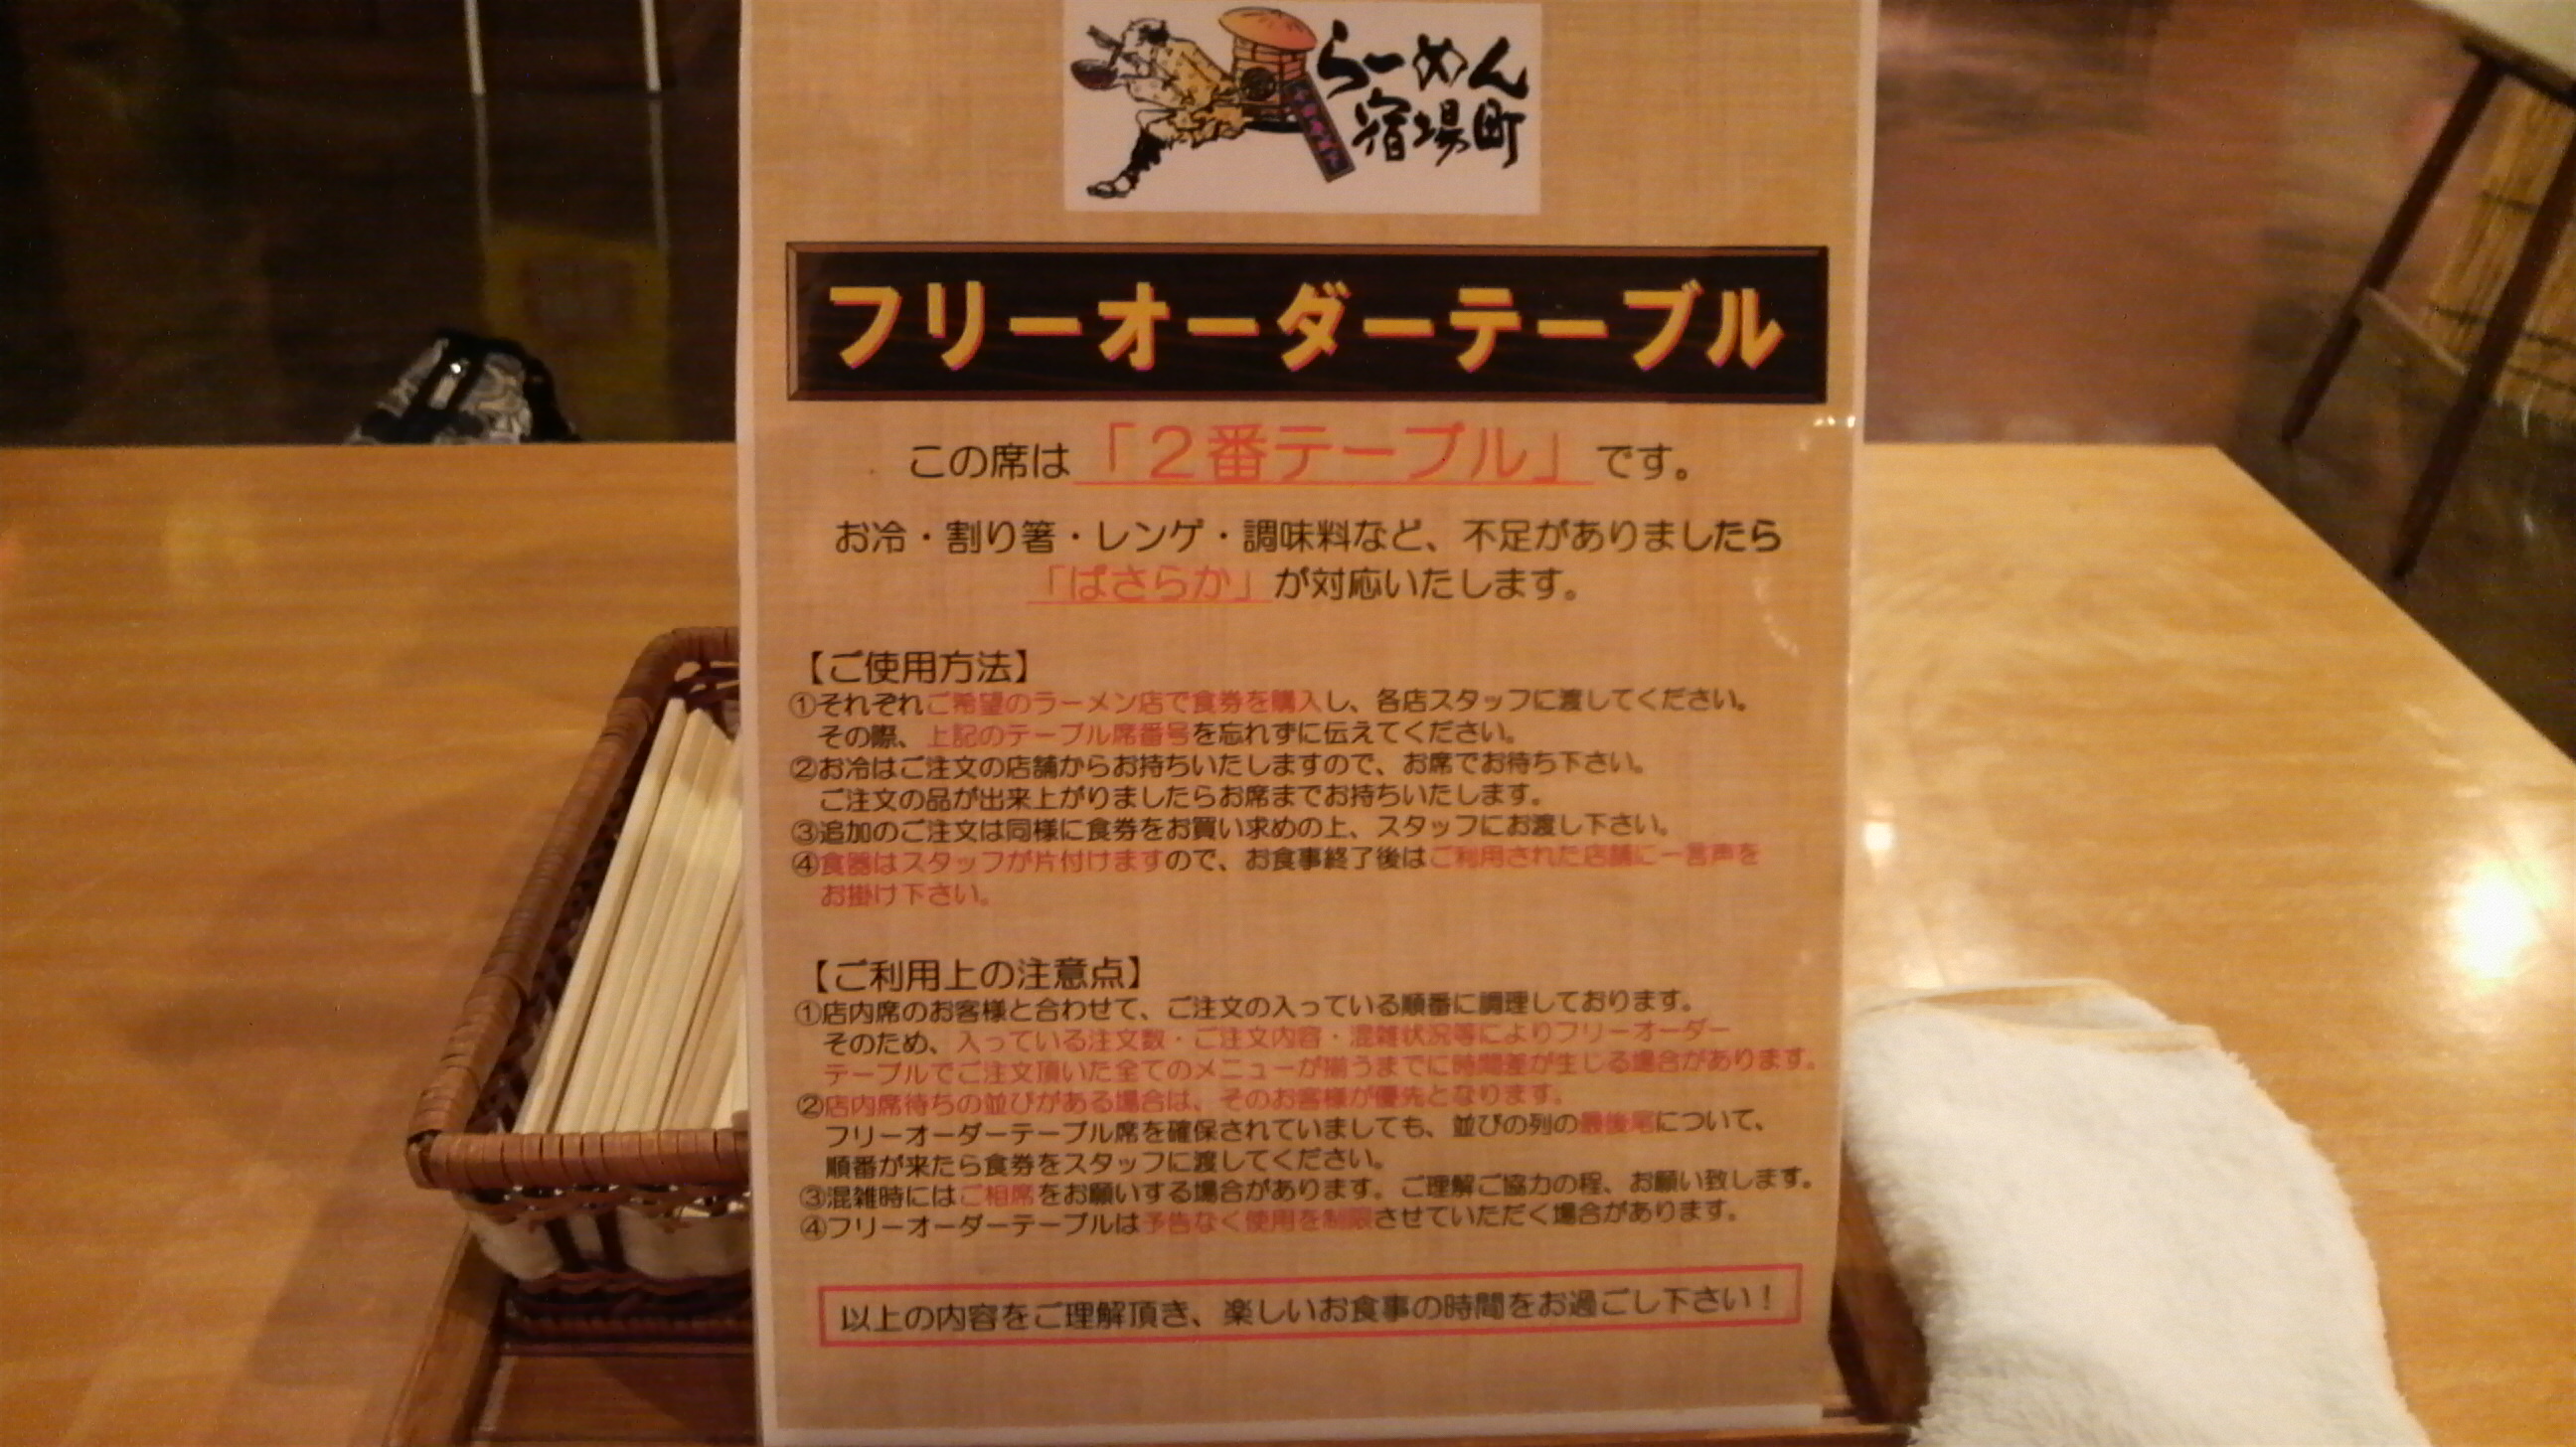 らーめん
宿場町
フリーオーダーテーブル
この席は「2番テーブル」です。
お冷・割り箸・レンゲ・調味料など、不足がありましたら
「ばさらか」が対応いたします。
【ご使用方法】
①それぞれご希望のラーメン店で食券を購入し、各店スタッフに渡してください。
その際、上記のテーブル席番号を忘れずに伝えてください。
②お冷はご注文の店舗からお持ちいたしますので、お席でお待ち下さい。
ご注文の品が出来上がりましたらお席までお持ちいたします。
③追加のご注文は同様に食券をお買い求めの上、スタッフにお渡し下さい。
④食器はスタッフが片付けますので、お食事終了後はご利用された店舗に一言声を
お掛け下さい。
【ご利用上の注意点】
①店内席のお客様と合わせて、ご注文の入っている順番に調理しております。
そのため、入っている注文数・ご注文内容・混雑状況等によりフリーオーダー
テーブルでご注文頂いた全てのメニューが揃うまでに時間差が生じる場合があります。
②店内席待ちの並びがある場合は、そのお客様が優先となります。
フリーオーダーテーブル席を確保されていましても、並びの列の最後尾について、
順番が来たら食券をスタッフに渡してください。
③混雑時にはご相席をお願いする場合があります。ご理解ご協力の程、お願い致します。
④フリーオーダーテーブルは予告なく使用を制限させていただく場合があります。
以上の内容をご理解頂き、楽しいお食事の時間をお過ごし下さい！